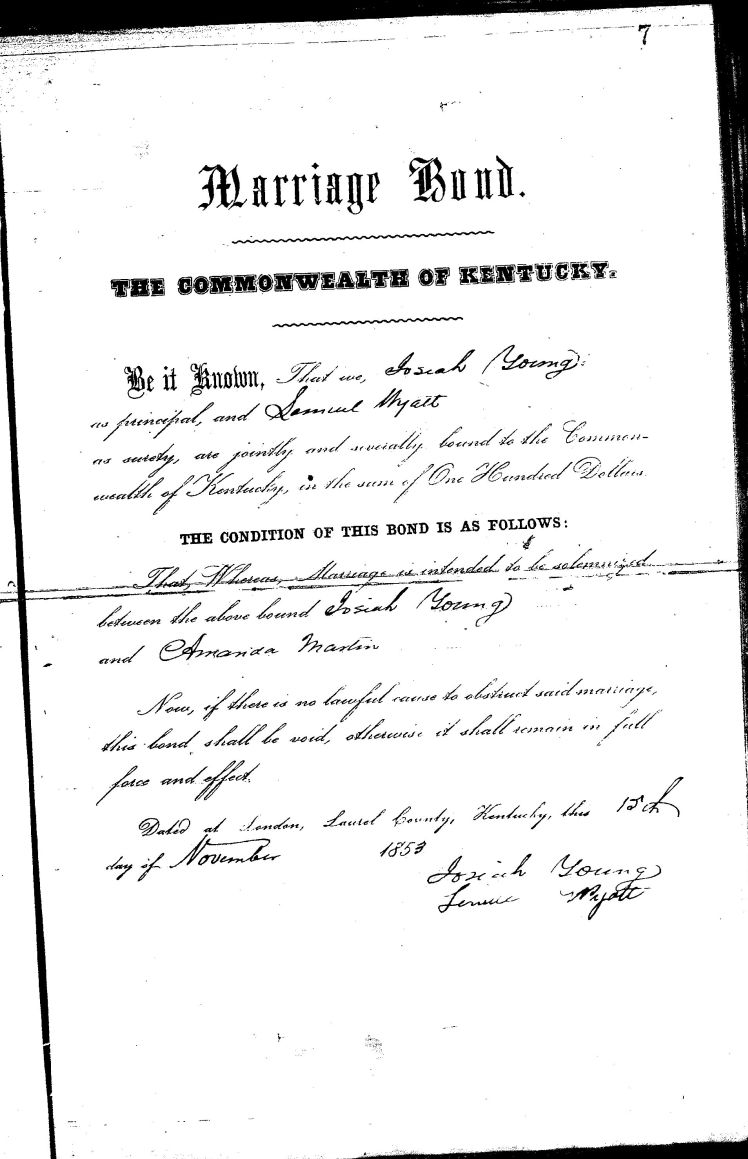 7
Marriage Bond.
THE COMMONWEALTH OF KENTUCKY.
Be it Known, That we, Josiah Young:
as principal, and Samuel Wyatt
as surety, are jointly and severally bound to the Common-
wealth of Kentucky, in the sum of One Hundred Dollars.
THE CONDITION OF THIS BOND IS AS FOLLOWS:
That, Whereas, Marriage is intended to be solemnized
between the above bound Josiah Young
and Amanda Martin
Now, if there is no lawful cause to obstruct said marriage,
this bond shall be void, otherwise it shall remain in full
force and effect.
Dated at London, Laurel County, Kentucky, this 15th
day of November 1853
Josiah Young
Wyatt